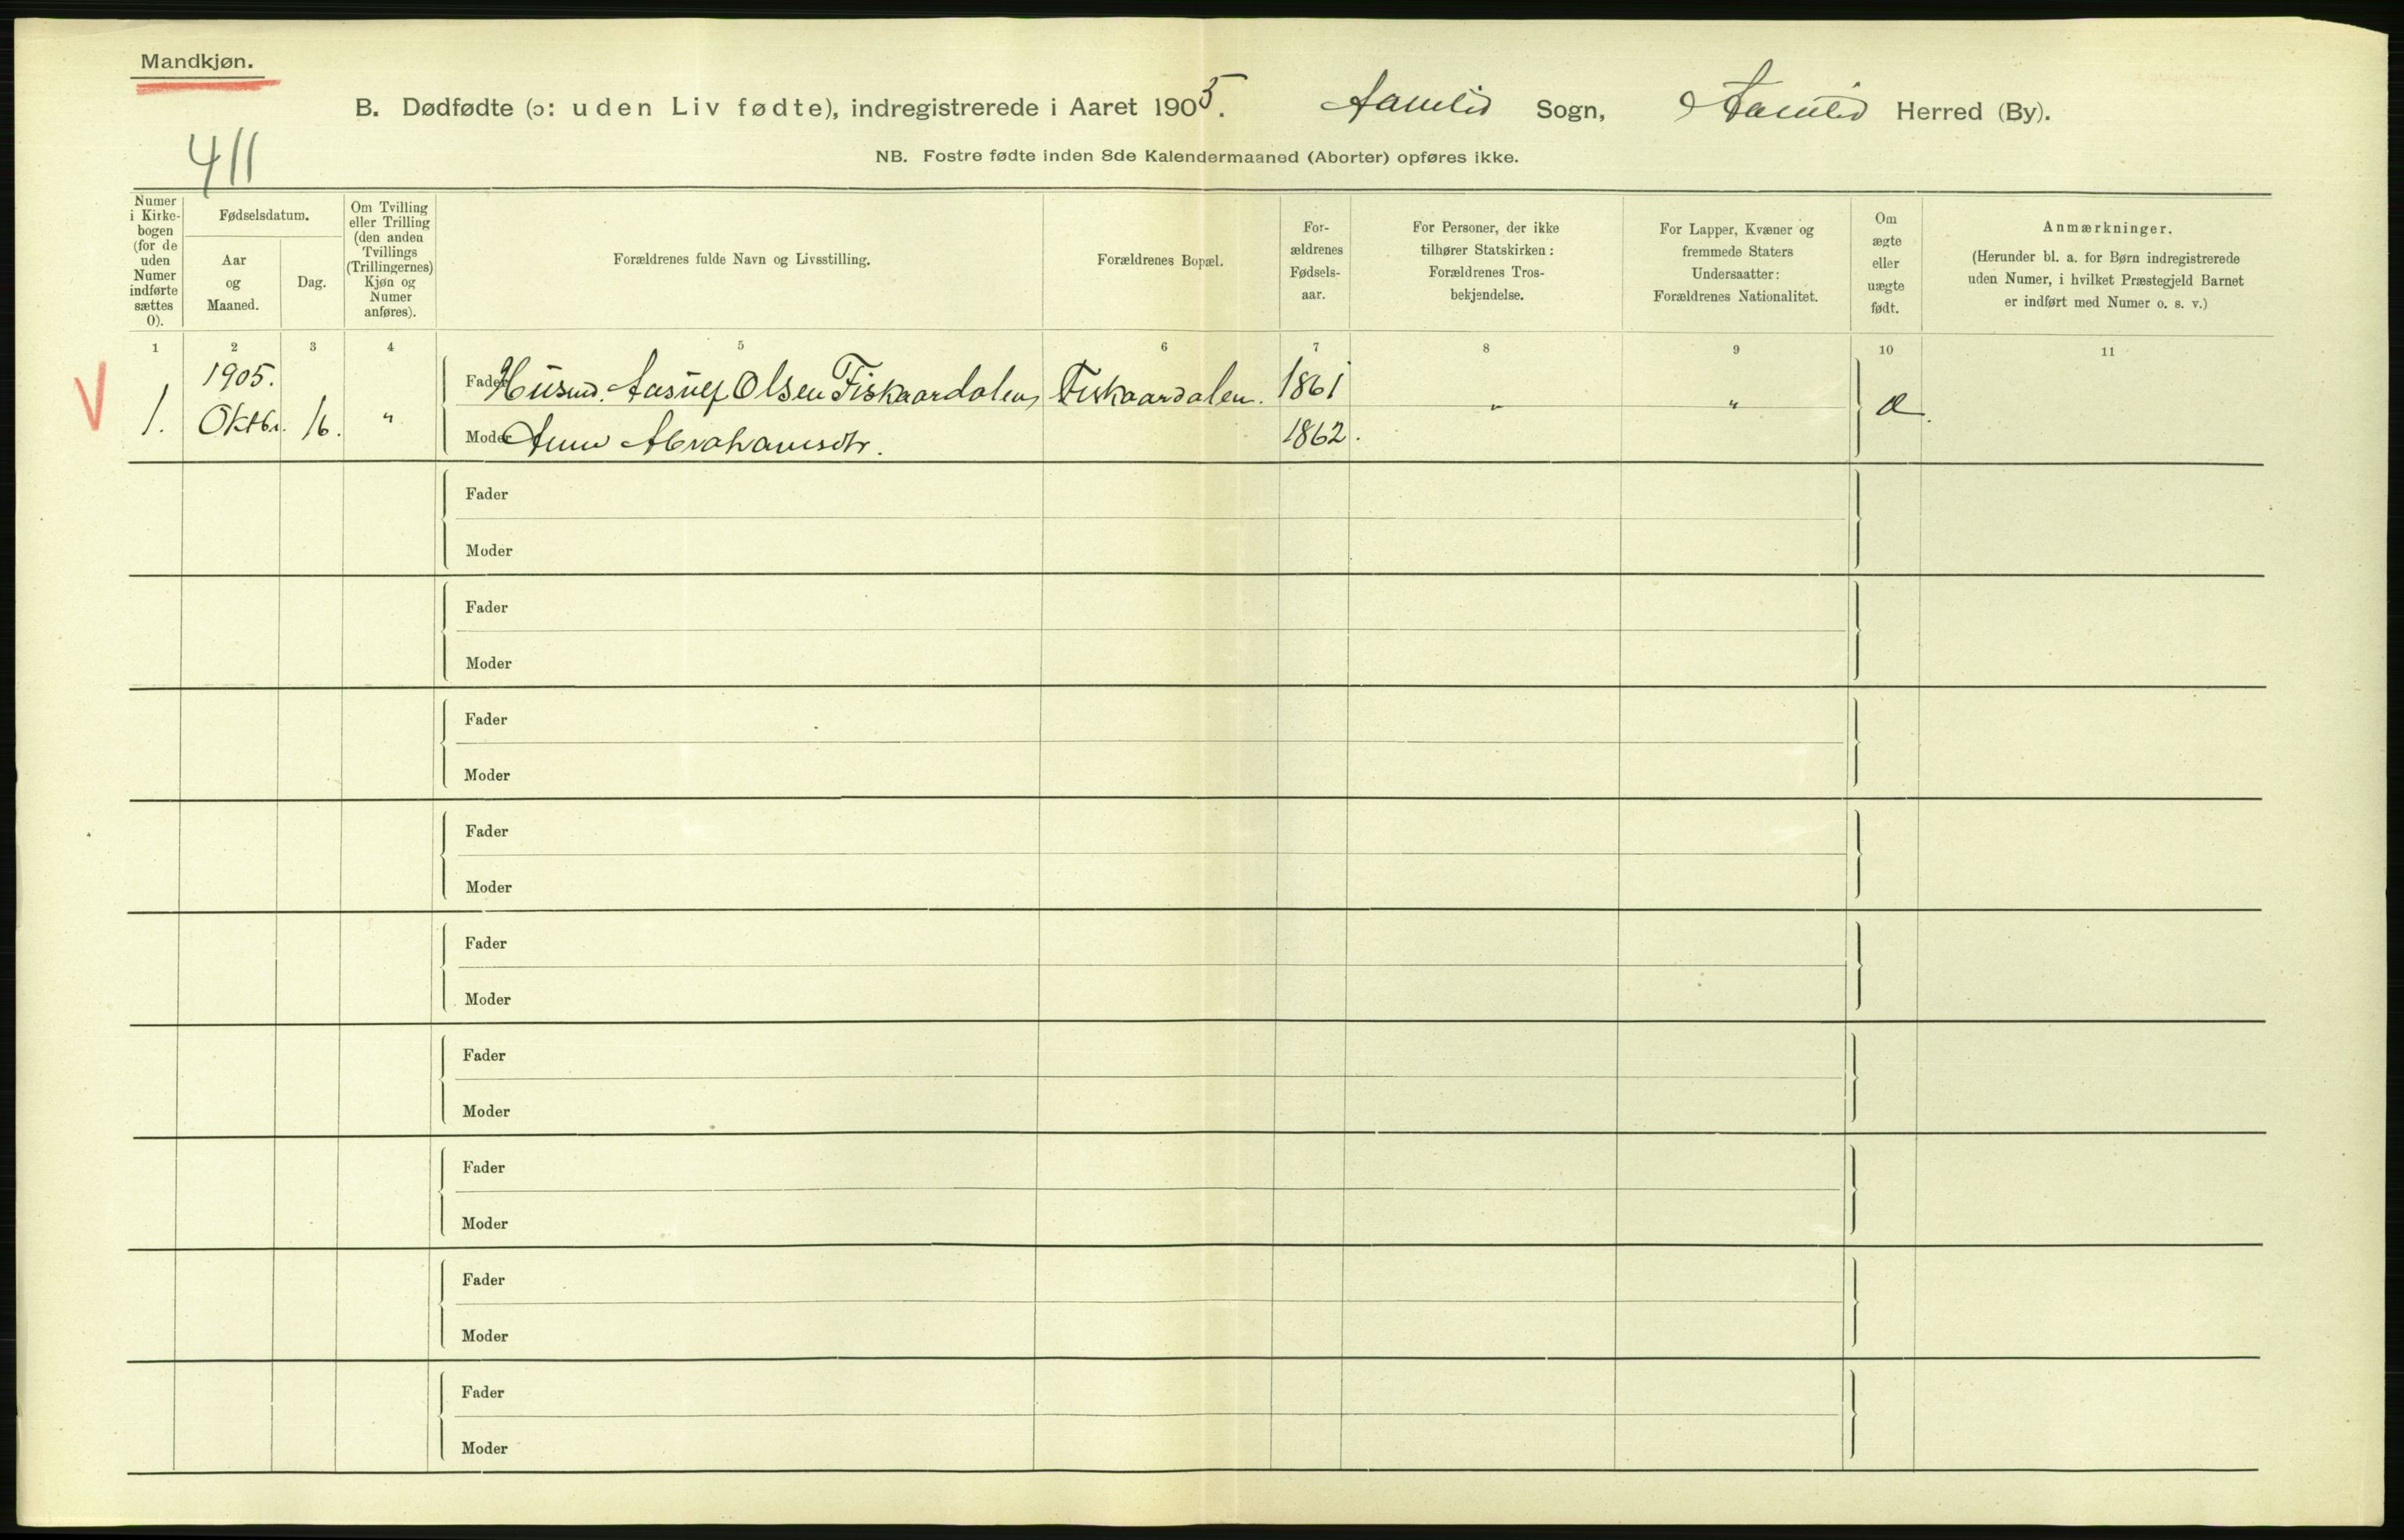 Mandkjøn.
B. Dødfødte (ɔ: uden Liv fødte), indregistrerede i Aaret 1905. Aamlid Sogn, Aamlid Herred (By).
411
NB. Fostre fødte inden 8de Kalendermaaned (Aborter) opføres ikke.
Numer i Kirke-bogen (for de uden Numer indførte sættes 0).
Fødselsdatum.
Aar og Maaned.
Dag.
Om Tvilling eller Trilling (den anden Tvillings (Trillingernes) Kjøn og Numer anføres).
Forældrenes fulde Navn og Livsstilling.
Forældrenes Bopæl.
For-ældrenes Fødsels-aar.
For Personer, der ikke tilhører Statskirken: Forældrenes Tros-bekjendelse.
For Lapper, Kvæner og fremmede Staters Undersaatter: Forældrenes Nationalitet.
Om ægte eller uægte født.
Anmærkninger.
(Herunder bl. a. for Børn indregistrerede uden Numer, i hvilket Præstegjeld Barnet er indført med Numer o. s. v.)
1 2 3 4 5 6 7 8 9 10 11
V
1905.
1. Oktbr. 16. "
Fader Husmd. Aasulf Olsen Fiskaardalen, Fiskaardalen. 1861 " " æ.
Moder Anne Abrahamsdtr. 1862.
Fader
Moder
Fader
Moder
Fader
Moder
Fader
Moder
Fader
Moder
Fader
Moder
Fader
Moder
Fader
Moder
Fader
Moder